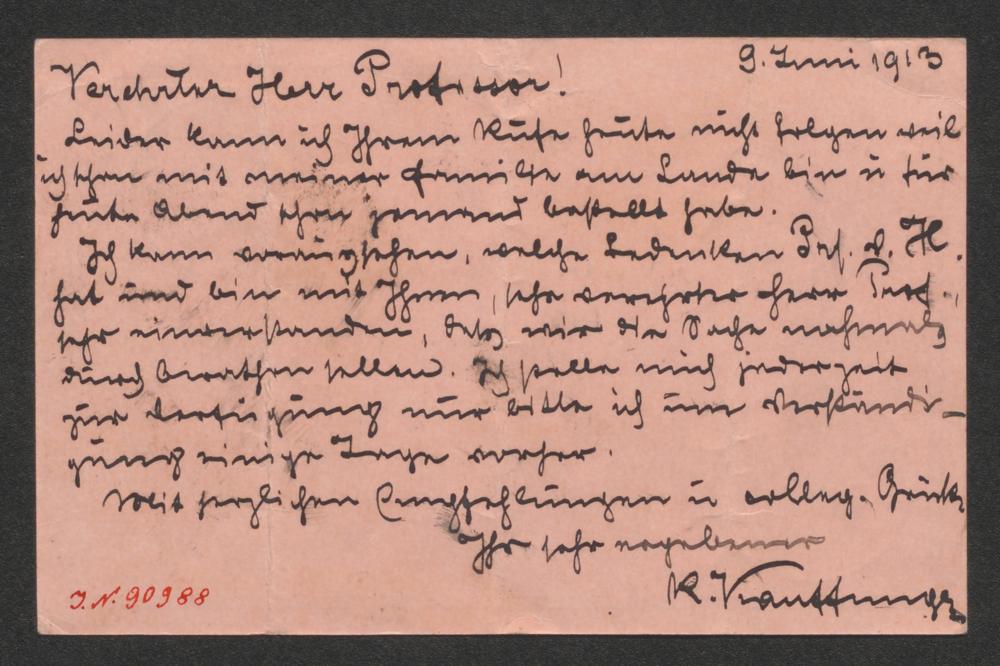 9. Juni 1913
Verehrter Herr Professor!
Leider kann ich Ihrem Rufe heute nicht folgen weil
ich schon mit meiner Familie am Lande bin u für
heute Abend schon jemand bestellt habe.
Ich kann voraussehen, welche Bedenken Prof. v. H.
hat und bin mit Ihnen, sehr verehrter Herr Prof.,
sehr einverstanden, dass wir die Sache nochmals
durchberathen sollen. Ich stelle mich jederzeit
zur Verfügung nur bitte ich um Verständi-
gung einige Tage vorher.
Mit herzlichen Empfehlungen u colleg. Grüßen
Ihr sehr ergebener
K.
J.N. 90988